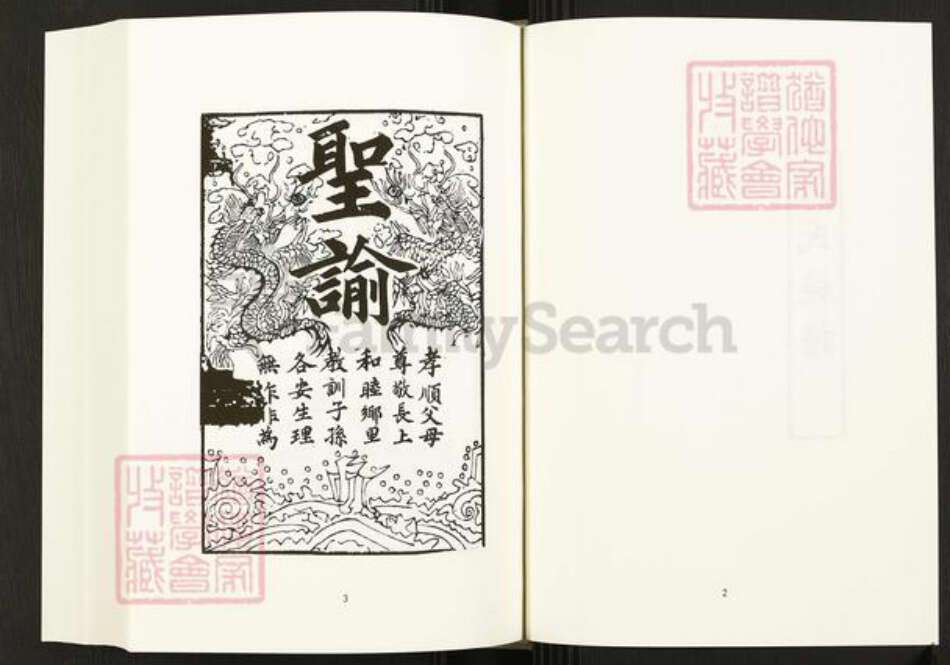 聖諭
孝順父母
尊敬長上
和睦鄉里
教訓子孫
各安生理
無作非為
3
2
FamilySearch
譜學會
收藏
譜學會
收藏